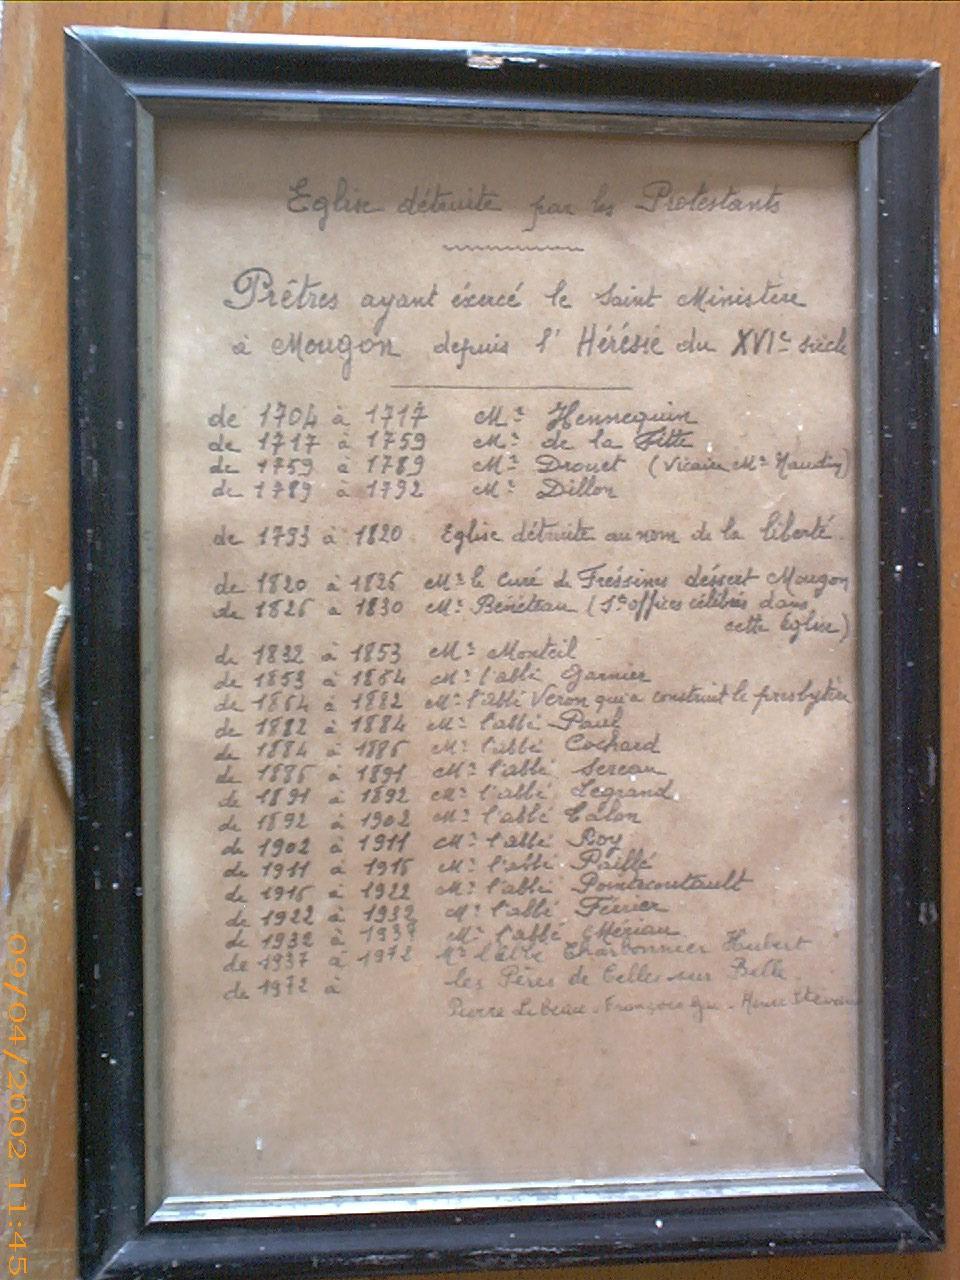 Eglise détruite par les Protestants
Prêtres ayant éxercé le Saint Ministère
à Mougon depuis l' Hérésie du XVIe siècle
de 1704 à 1717 Mr Hennequin
de 1717 à 1759 Mr de la Fitte
de 1759 à 1789 Mr Drouet (Vicaire Mr Naudin)
de 1789 à 1792 Mr Dillon
de 1793 à 1820 Eglise détruite au nom de la liberté.
de 1820 à 1826 Mr le Curé de Fressines déssert Mougon
de 1826 à 1830 Mr Bénéteau (1ers offices célébrés dans
cette église)
de 1832 à 1853 Mr Monteil
de 1853 à 1864 Mr l'abbé Garnier
de 1864 à 1882 Mr l'abbé Véron qui a construit le presbytère
de 1882 à 1884 Mr l'abbé Paul
de 1884 à 1886 Mr l'abbé Cochard
de 1886 à 1891 Mr l'abbé Sereau
de 1891 à 1892 Mr l'abbé Legrand
de 1892 à 1902 Mr l'abbé Calon
de 1902 à 1911 Mr l'abbé Roy
de 1911 à 1916 Mr l'abbé Paillé
de 1916 à 1922 Mr l'abbé
de 1922 à 1932 Mr l'abbé Ferrier
de 1932 à 1937 Mr l'abbé Mériau
de 1937 à 1972 Mr l'abbé Charbonnier Hubert
de 1972 à les Pères de Celles sur Belle
Pierre Lebeau - François - Henri
09/04/2002 11:45